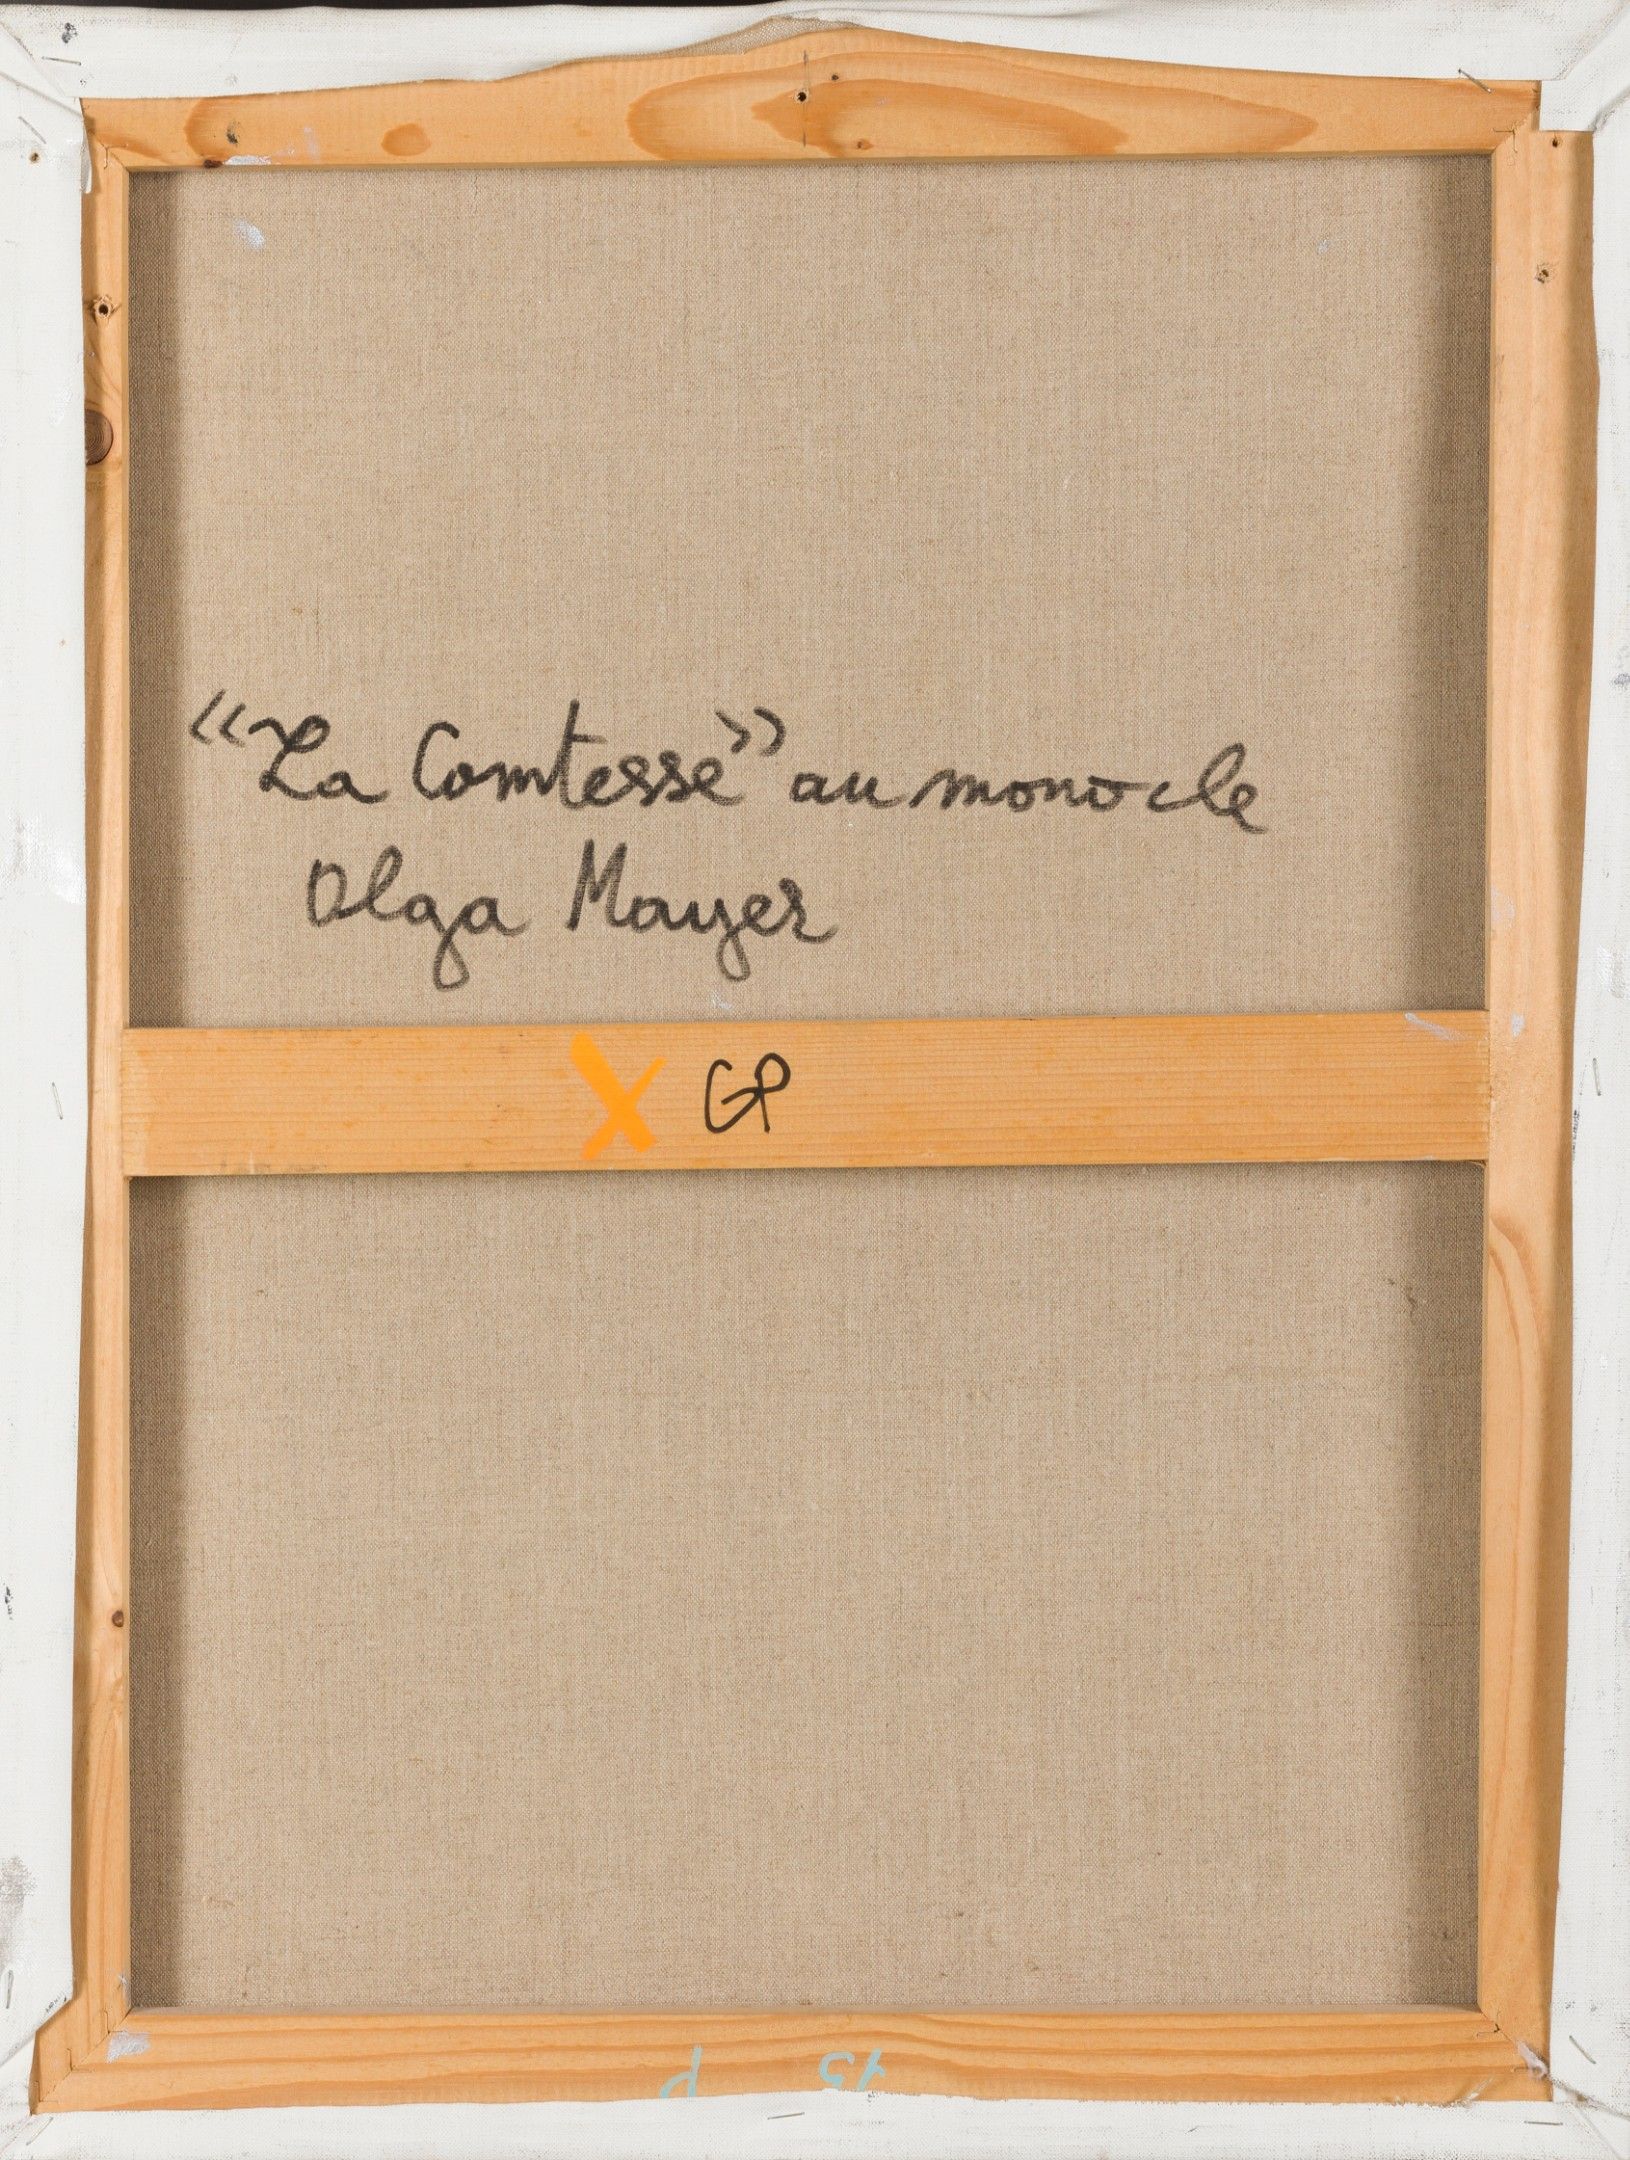 “La Comtesse” au monocle
Olga Mayer
X GP